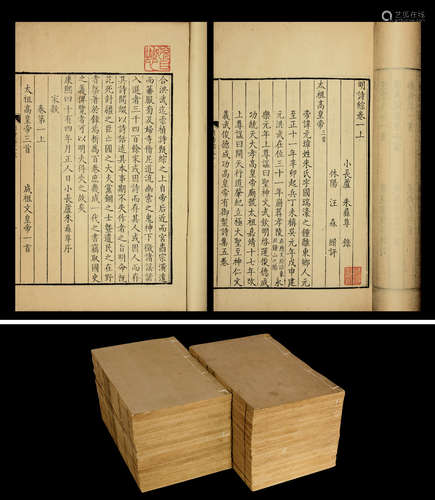 合洪武迄崇禎詩甄綜之上自帝后近而宮壼宗潢遠
而蕃服旁及婦寺僧尼道流幽索之鬼神下徵諸謠諺
入選者三千四百餘家或因詩而存其人或因人而存
其詩間綴以詩話述其本事期不失作者之旨明命既
訖死封疆之臣亡國之大夫黨錮之士曁遺民之在野
者槩著於錄焉析爲百卷庶幾成一代之書竊取國史
之義俾覽者可以明夫得失之故矣
康熙四十有四年月正人日小長蘆朱彝尊序
家數
卷第一上
太祖高皇帝三首 成祖文皇帝一首
明詩綜卷一上
小長蘆 朱彝尊 錄
休陽 汪森 緝評
太祖高皇帝三首
帝諱元璋姓朱氏字國瑞濠之鍾離東鄉人元
至正十一年辛卯起兵丁未稱吳元年戊申建
元洪武在位三十一年葬孝陵 永
樂元年上尊諡曰聖神文武欽明啓運俊德成
功統天大孝高皇帝廟號太祖嘉靖十七年改
上尊諡曰開天行道肇紀立極大聖至神仁文
義武俊德成功高皇帝有御製詩集五卷